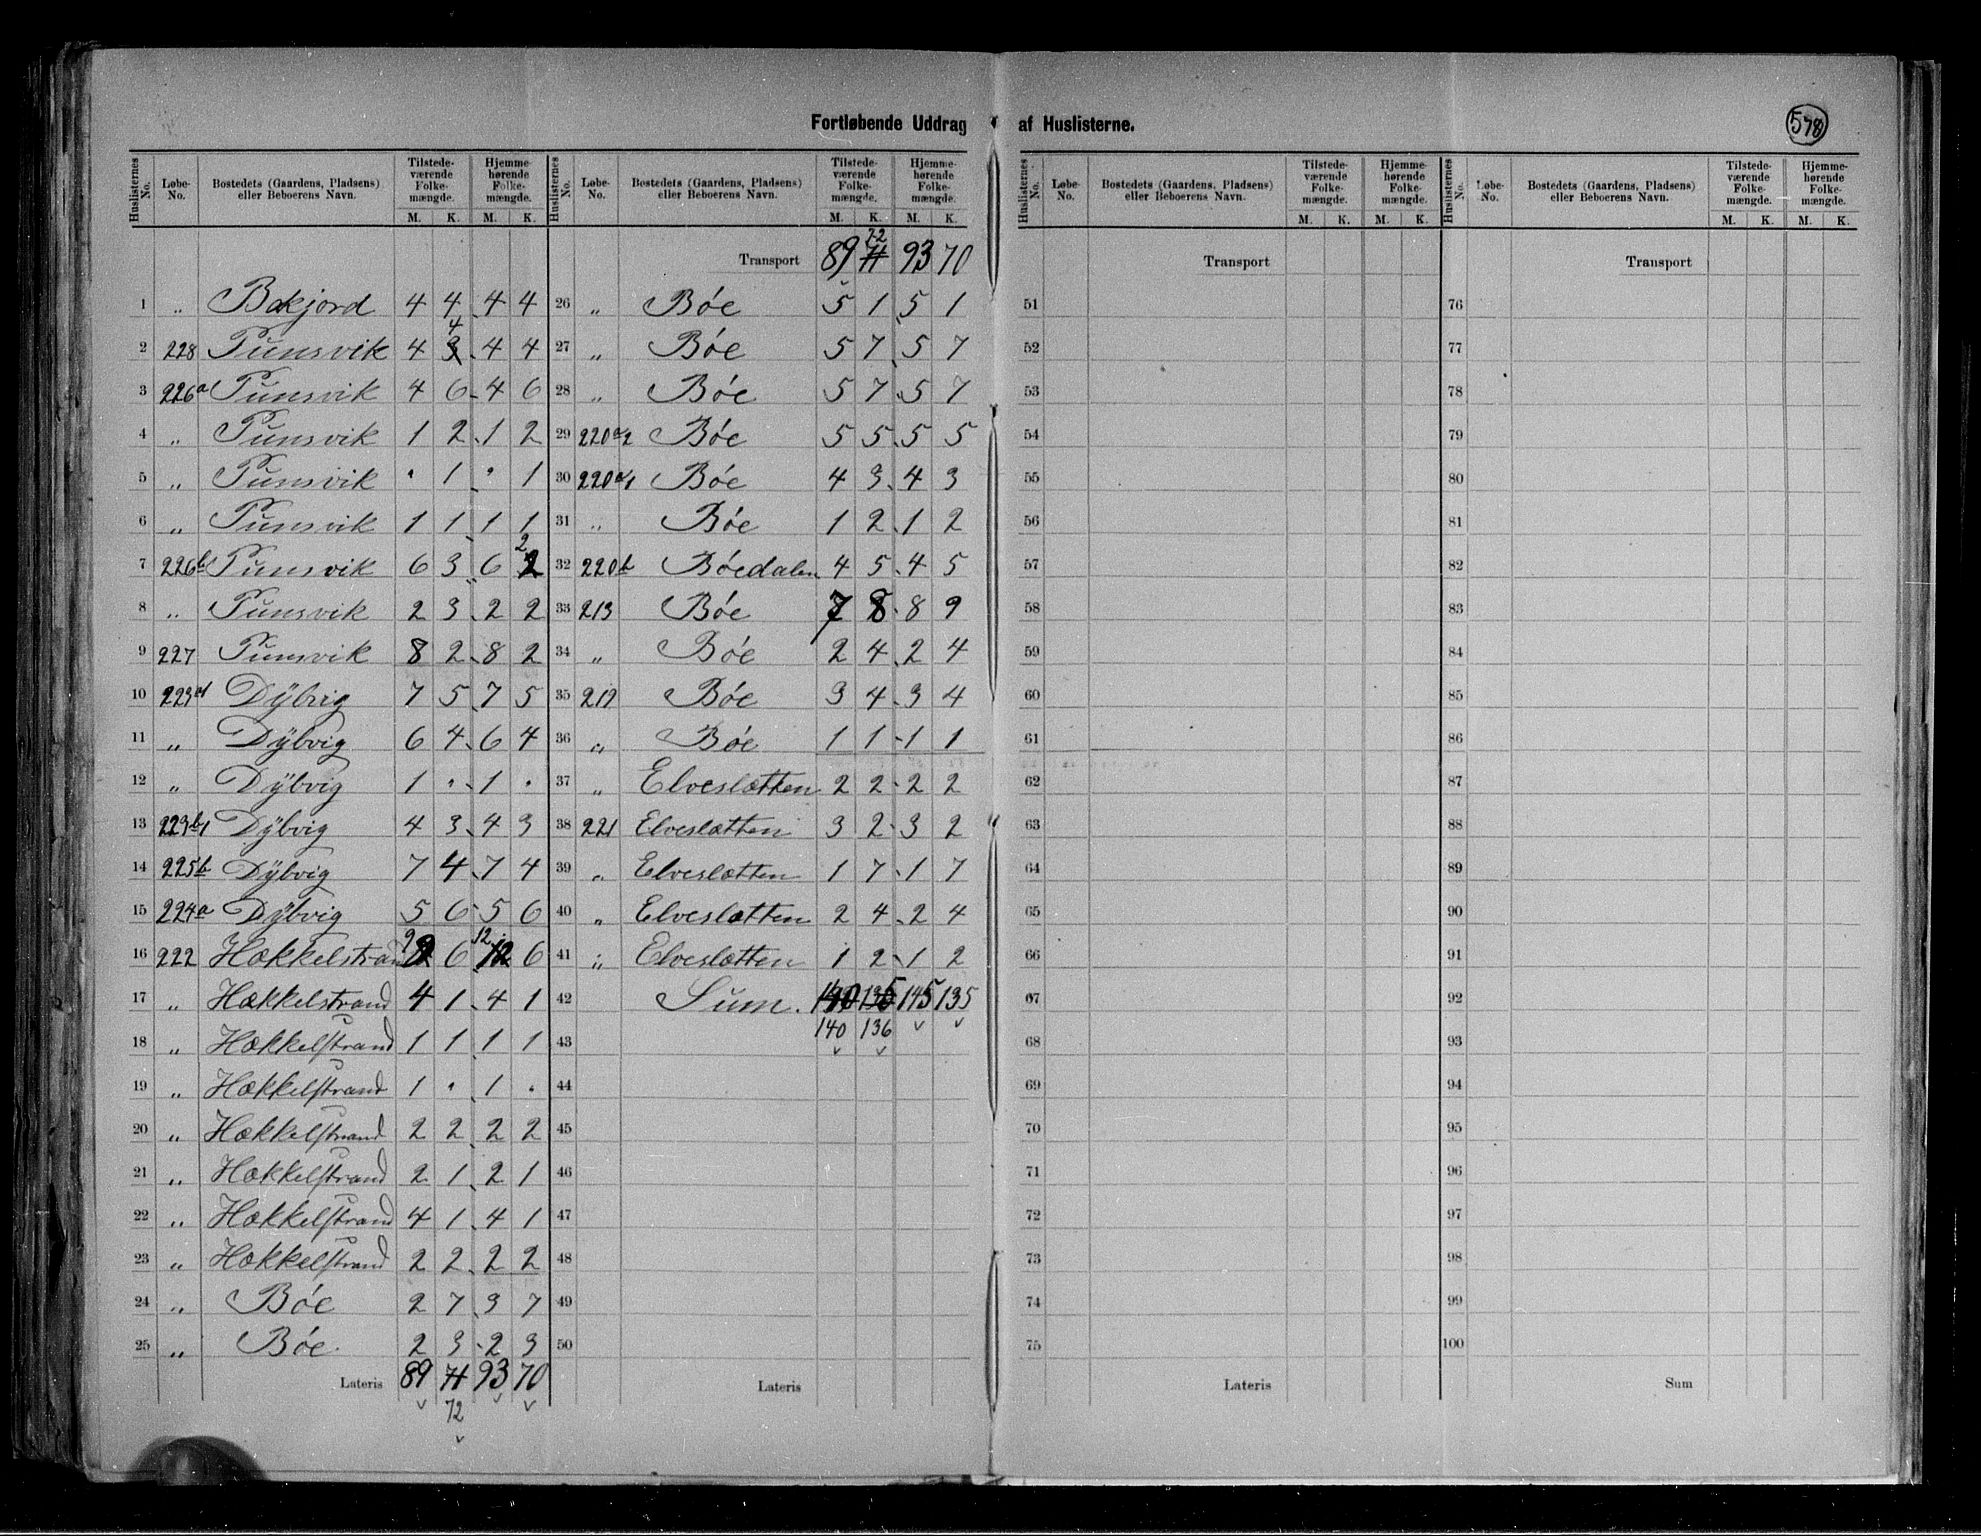 Fortløbende Uddrag af Huslisterne.
578
Huslisternes No. Løbe-No. Bostedets (Gaardens, Pladsens) eller Beboerens Navn. Tilstedeværende Folkemængde. M. K. Hjemmehørende Folkemængde. M. K.
1 " Bakjord 4 4 4 4
2 228 Punsvik 4 3 4 4 4
3 226a Punsvik 4 6 4 6
4 " Punsvik 1 2 1 2
5 " Punsvik " 1 " 1
6 " Punsvik 1 1 1 1
7 226b Punsvik 6 3 6 2 2
8 " Punsvik 2 3 2 2
9 227 Punsvik 8 2 8 2
10 223a1 Dÿbvig 7 5 7 5
11 " Dÿbvig 6 4 6 4
12 " Dÿbvig 1 " 1 "
13 223b1 Dÿbvig 4 3 4 3
14 225b Dÿbvig 7 4 7 4
15 224a Dÿbvig 5 6 5 6
16 222 Hækkelstrand 9 6 12 6
17 " Hækkelstrand 4 1 4 1
18 " Hækkelstrand 1 1 1 1
19 " Hækkelstrand 1 " 1 "
20 " Hækkelstrand 2 2 2 2
21 " Hækkelstrand 2 1 2 1
22 " Hækkelstrand 4 1 4 1
23 " Hækkelstrand 2 2 2 2
24 " Bóe 2 7 3 7
25 " Bóe 2 3 2 3
Lateris 89 71 93 70
72
Huslisternes No. Løbe-No. Bostedets (Gaardens, Pladsens) eller Beboerens Navn. Tilstedeværende Folkemængde. M. K. Hjemmehørende Folkemængde. M. K.
72
Transport 89 71 93 70
26 " Bóe 5 1 5 1
27 " Bóe 5 7 5 7
28 " Bóe 5 7 5 7
29 220a2 Bóe 5 5 5 5
30 220a1 Bóe 4 3 4 3
31 " Bóe 1 2 1 2
32 220b Bóedalen 4 5 4 5
33 213 Bóe 7 8 8 9
34 " Bóe 2 4 2 4
35 219 Bóe 3 4 3 4
36 " Bóe 1 1 1 1
37 " Elveslætten 2 2 2 2
38 221 Elveslætten 3 2 3 2
39 " Elveslætten 1 7 1 7
40 " Elveslætten 2 4 2 4
41 " Elveslætten 1 2 1 2
42 Sum. 140 135 145 135
43 140 136
44
45
46
47
48
49
50
Lateris
Huslisternes No. Løbe-No. Bostedets (Gaardens, Pladsens) eller Beboerens Navn. Tilstedeværende Folkemængde. M. K. Hjemmehørende Folkemængde. M. K.
Transport
51
52
53
54
55
56
57
58
59
60
61
62
63
64
65
66
67
68
69
70
71
72
73
74
75
Lateris
Huslisternes No. Løbe-No. Bostedets (Gaardens, Pladsens) eller Beboerens Navn. Tilstedeværende Folkemængde. M. K. Hjemmehørende Folkemængde. M. K.
Transport
76
77
78
79
80
81
82
83
84
85
86
87
88
89
90
91
92
93
94
95
96
97
98
99
100
Sum